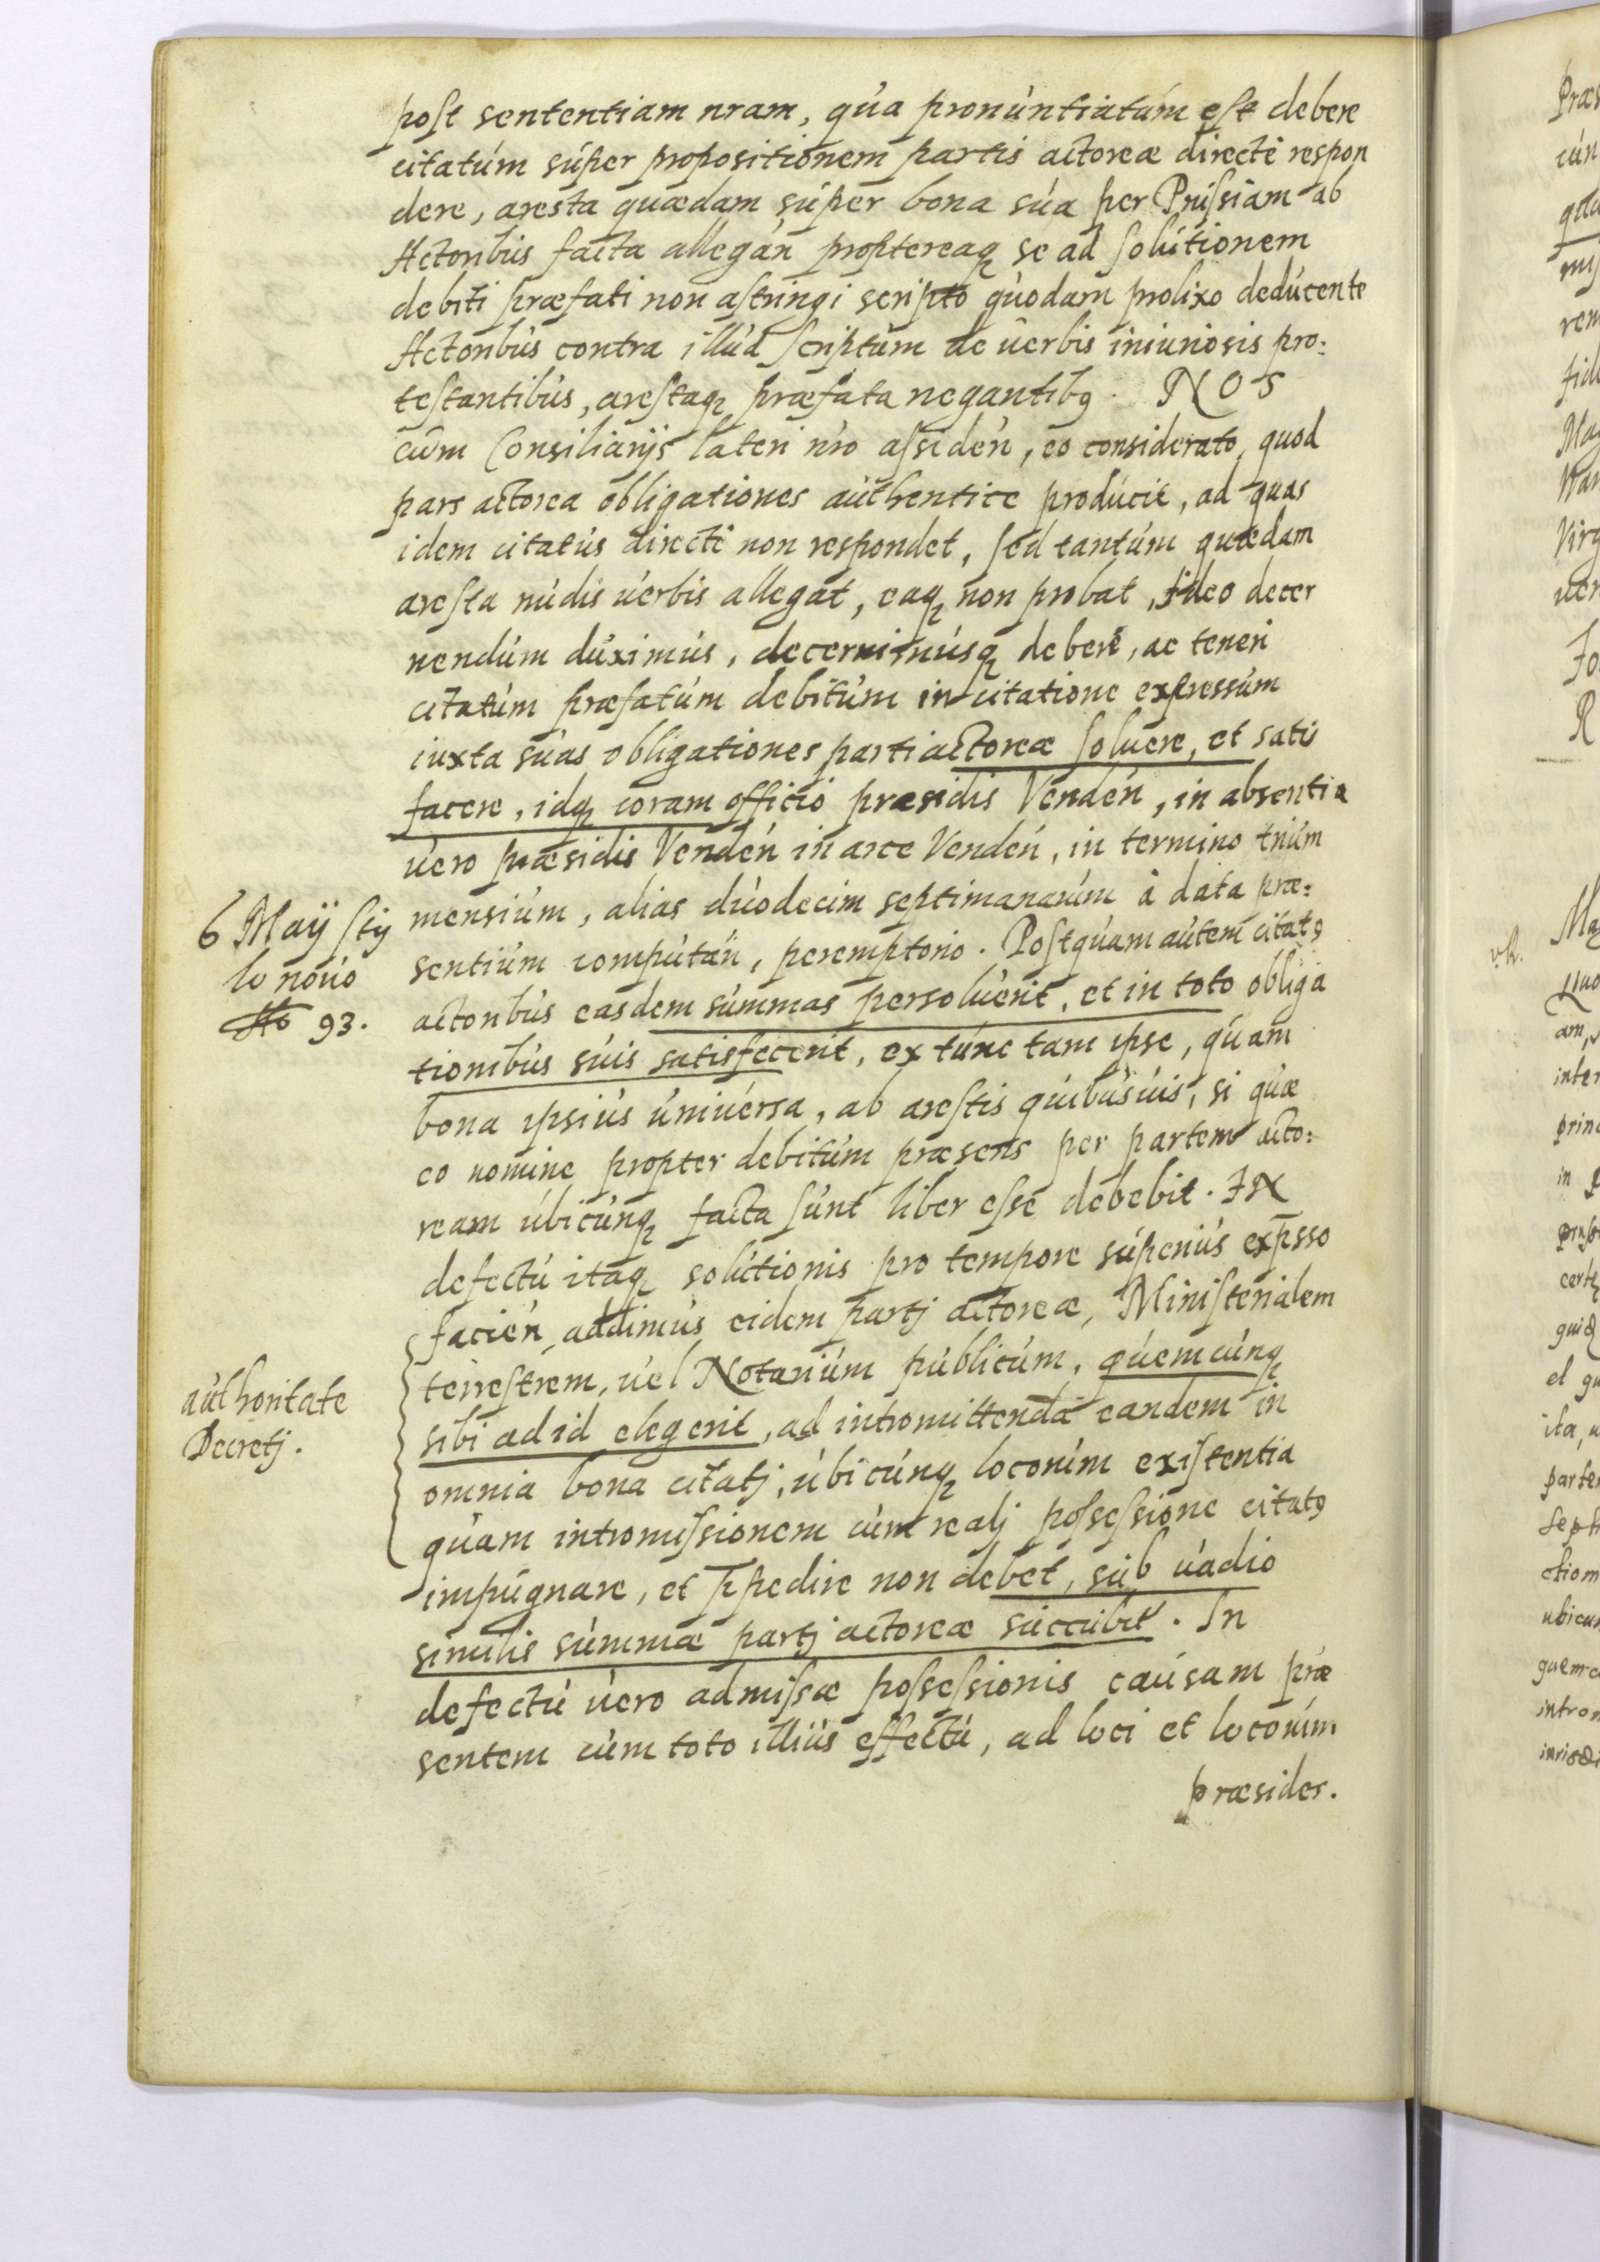 post sententiam nram, qua pronuntiatum est debere
citatum super propositionem partis actoreæ directè respon
dere, aresta quædam super bona sua per Prussiam ab
Actoribus facta allegan proptereaq se ad solutionem
debiti præfati non astringi scripto quodam prolixo deducente
Actoribus contra illud scriptum de verbis iniuriosis pro:
testantibus, arestaq præfata negantibq. NOS
cum Consiliarijs lateri nro assiden, eo considerato, quod
pars actorea obligationes authentice producit, ad quas
idem citatus directè non respondet, sed tantum quædam
aresta nudis verbis allegat, eaq non probat, Ideo decer
nendum duximus, decernimusq debere, ac teneri
citatum præfatum debitum in citatione expressum
iuxta suas obligationes parti actoreæ soluere, et satis
facere, idq coram officio præsidis Venden, in absentia
vero præsidis Venden in arce Venden, in termino trium
mensium, alias duodecim septimanarum à data præ:
sentium computan, peremptorio. Postquam autem citatq
actoribus easdem summas persoluerit, et in toto obliga
tionibus suis satisfecerit, ex tunc tam ipse, quam
bona ipsius universa, ab arestis quibusuis, si quæ
eo nomine propter debitum præsens per partem acto:
ream ubicunq facta sunt liber esse debebit. IN
defectu itaq solutionis pro tempore superius expsso
facien addimus eidem partj actoreæ, Ministerialem
terrestrem, vel Notarium publicum, quemcunq
sibi ad id elegerit, ad intromittenda eandem in
omnia bona citatj, ubicunq locorum existentia
quam intromissionem cum realj possessione citatq
impugnare, et ppedire non debet, sub vadio
similis summæ partj actoreæ succubit. In
defectu vero admissæ possessionis causam præ
sentem cum toto illius effectu, ad loci et locorum
præsides.
6 Maij sty
lo nouo
Ao 93.
authoritate
Decretj.